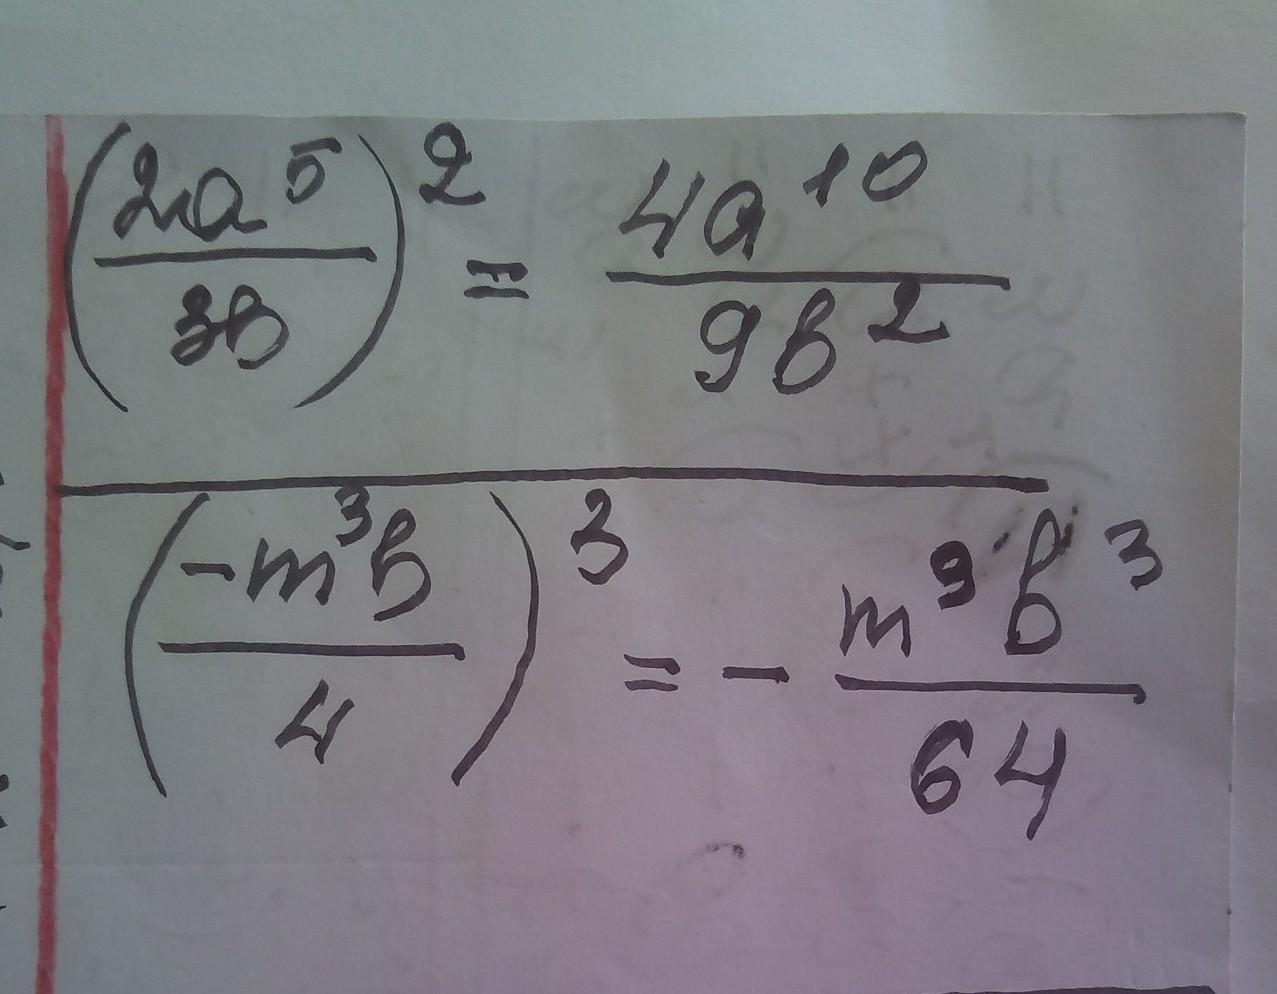 (2a⁵/3b)² = 4a¹⁰/9b²
(-m³b/4)³ = - m⁹b³/64